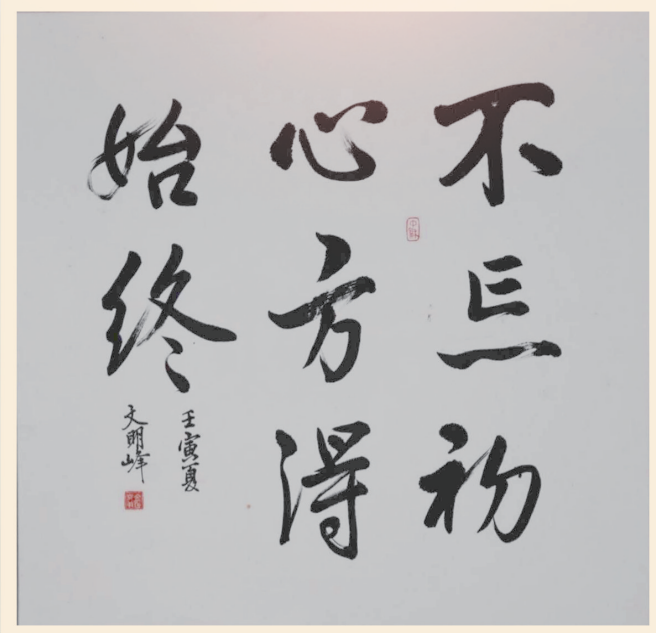 不忘初
心方得
始终
壬寅夏
文明峰